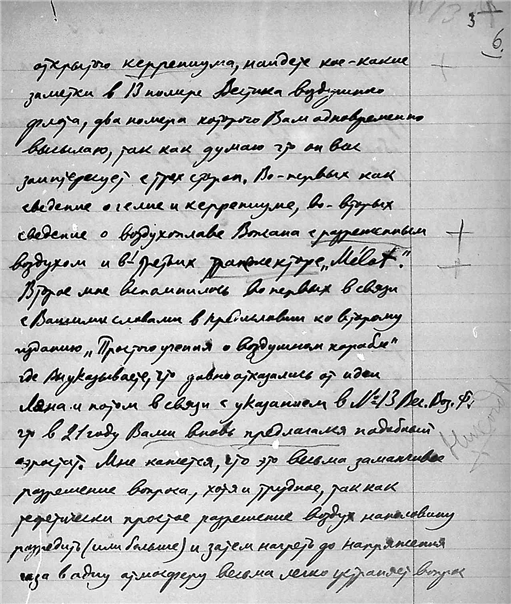 3
6.
открытого керрениума, найдете кое-какие
заметки в 13 номере Вестника воздушного
флота, два номера которого Вам одновременно
высылаю, так как думаю что он вас
заинтересует с трех сторон. Во-первых как
сведение о гелие и керрениуме, во-вторых
сведение о воздухоплаве Вожана с разреженным
воздухом и в третьих „Mélot“.
Второе мне вспомнилось во первых в связи
с Вашими словами в предисловии ко второму
изданию „Простого учения о воздушном корабле“
где Вы указываете, что давно отказались от идеи
Ляна и потом в связи с указанием в №13 Вес. Воз. Ф.
что в 21 году Вами вновь предлагался подобный
аэростат. Мне кажется, что это весьма заманчивое
разрешение вопроса, хотя и трудное, так как
простое разрешение воздух наполовину
разредить (или больше) и затем нагреть до напряжения
газа в одну атмосферу весьма легко устраняет вопрос